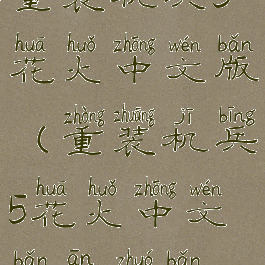 huā huǒ zhōng wén bǎn
花火中文版
zhòng zhuāng jī bīng
(重装机兵
huā huǒ zhōng wén
5花火中文
bǎn ān zhuó bǎn